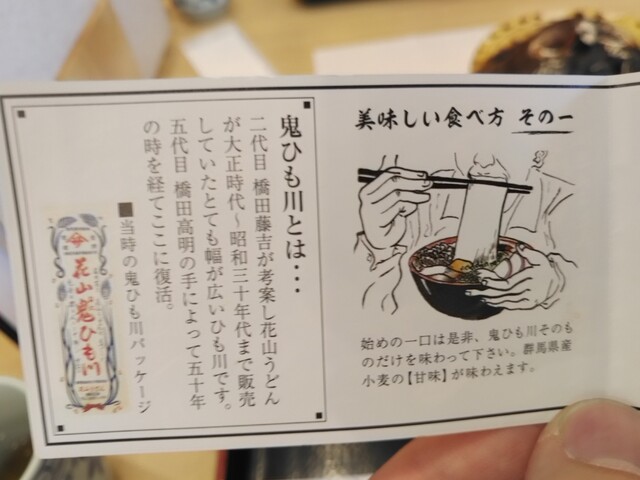 鬼ひも川とは…
二代目 橋田藤吉が考案し花山うどん
が大正時代～昭和三十年代まで販売
していたとても幅が広いひも川です。
五代目 橋田高明の手によって五十年
の時を経てここに復活。
■当時の鬼ひも川パッケージ
花山鬼ひも川
美味しい食べ方 その一
始めの一口は是非、鬼ひも川そのも
のだけを味わって下さい。群馬県産
小麦の【甘味】が味わえます。